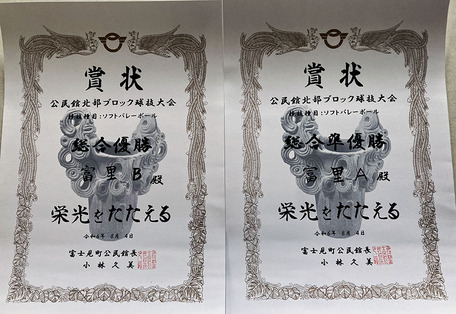 賞状
公民館北部ブロック球技大会
競技種目:ソフトバレーボール
総合優勝
富里B殿
栄光をたたえる
令和6年 8月 4日
富士見町公民館長
小林久美
賞状
公民館北部ブロック球技大会
競技種目:ソフトバレーボール
総合準優勝
富里A殿
栄光をたたえる
令和6年 8月 4日
富士見町公民館長
小林久美